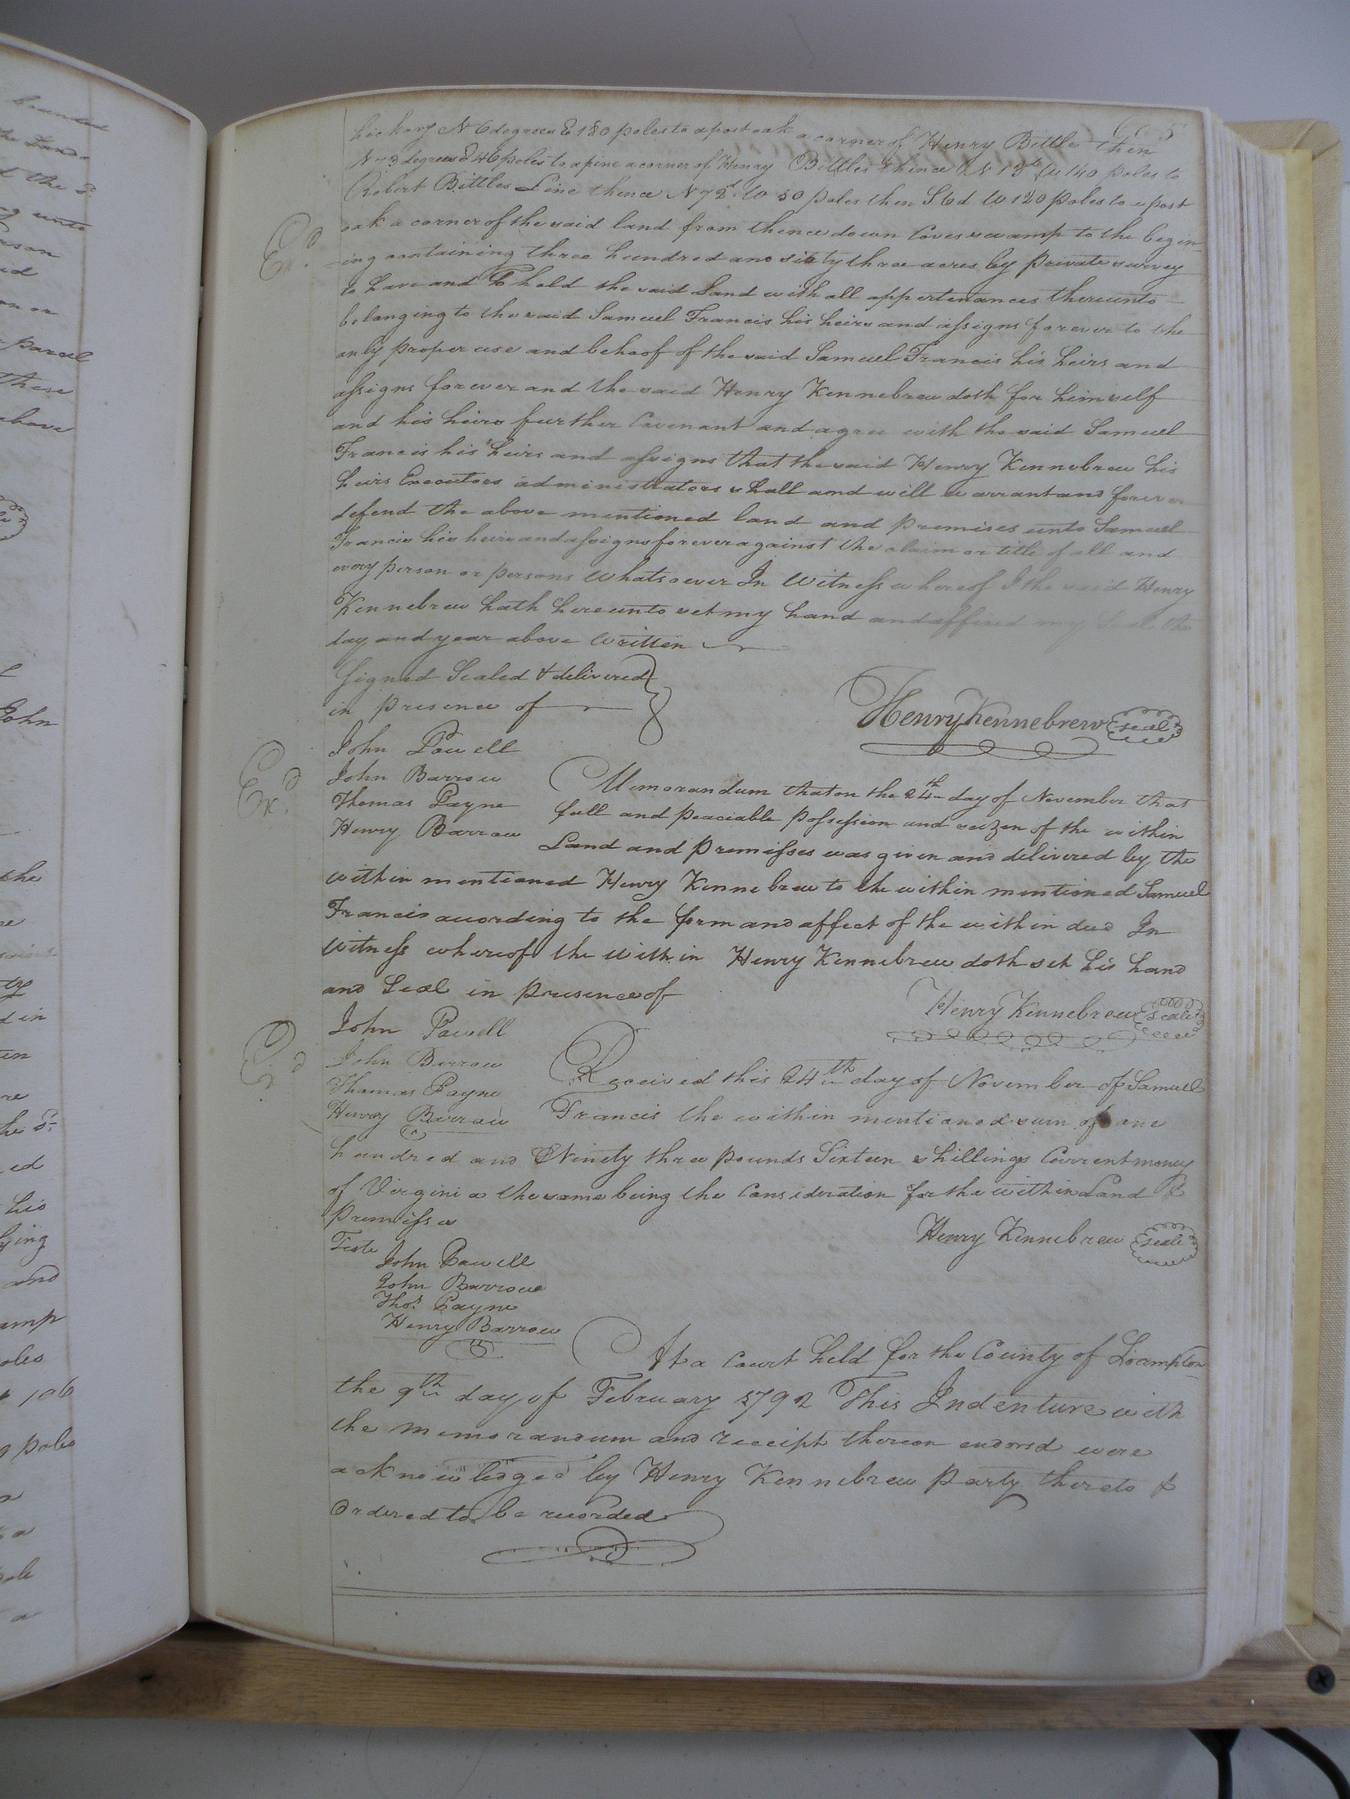 hickory N 6 degrees E 180 poles to a post oak a corner of Henry Bittles then
N 73 degrees E 46 poles to a pine a corner of Henry Bittles thence N 13d W 140 poles to
Robert Bittles Line thence N 72d W 50 poles then S 6d W 120 poles to a post
oak a corner of the said land from thence down Coves swamp to the begin-
ing containing three hundred and sixty three acres by private survey
to have and To hold the said Land with all appertenances thereunto
belonging to the said Samuel Francis his heirs and assigns forever to the
only proper use and behoof of the said Samuel Francis his heirs and
assigns forever and the said Henry Kennebrew doth for himself
and his heirs further Covenant and agree with the said Samuel
Francis his heirs and assigns that the said Henry Kennebrew his
heirs Executors administrators shall and will warrant and forever
defend the above mentioned land and premises unto Samuel
Francis his heirs and assigns forever against the claim or title of all and
every person or persons whatsoever In Witness whereof I the said Henry
Kennebrew hath hereunto set my hand and affixed my Seal the
day and year above written
Signed Sealed & delivered
in presence of
Henry Kennebrew seal
John Powell
John Barrow
Thomas Payne
Henry Barrow
Exd
Exd
Memorandum that on the 24th day of November that
full and peaciable possession and seizen of the within
Land and premisses was given and delivered by the
within mentioned Henry Kennebrew to the within mentioned Samuel
Francis according to the form and affect of the within deed In
Witness whereof the within Henry Kennebrew doth set his hand
and Seal in presence of
Henry Kennebrew seale
John Powell
John Barrow
Thomas Payne
Henry Barrow
Exd
Received this 24th day of November of Samuel
Francis the within mentioned sum of one
hundred and Ninety three pounds Sixteen shillings Current money
of Virginia the same being the Consideration for the within Land &
Premisses
Henry Kennebrew seale
Teste
John Powell
John Barrow
Thos. Payne
Henry Barrow
At a Court held for the County of Soampton
the 9th day of February 1792 This Indenture with
the memorandum and receipt thereon endorsd were
acknowledged by Henry Kennebrew party thereto &
Ordered to be recorded